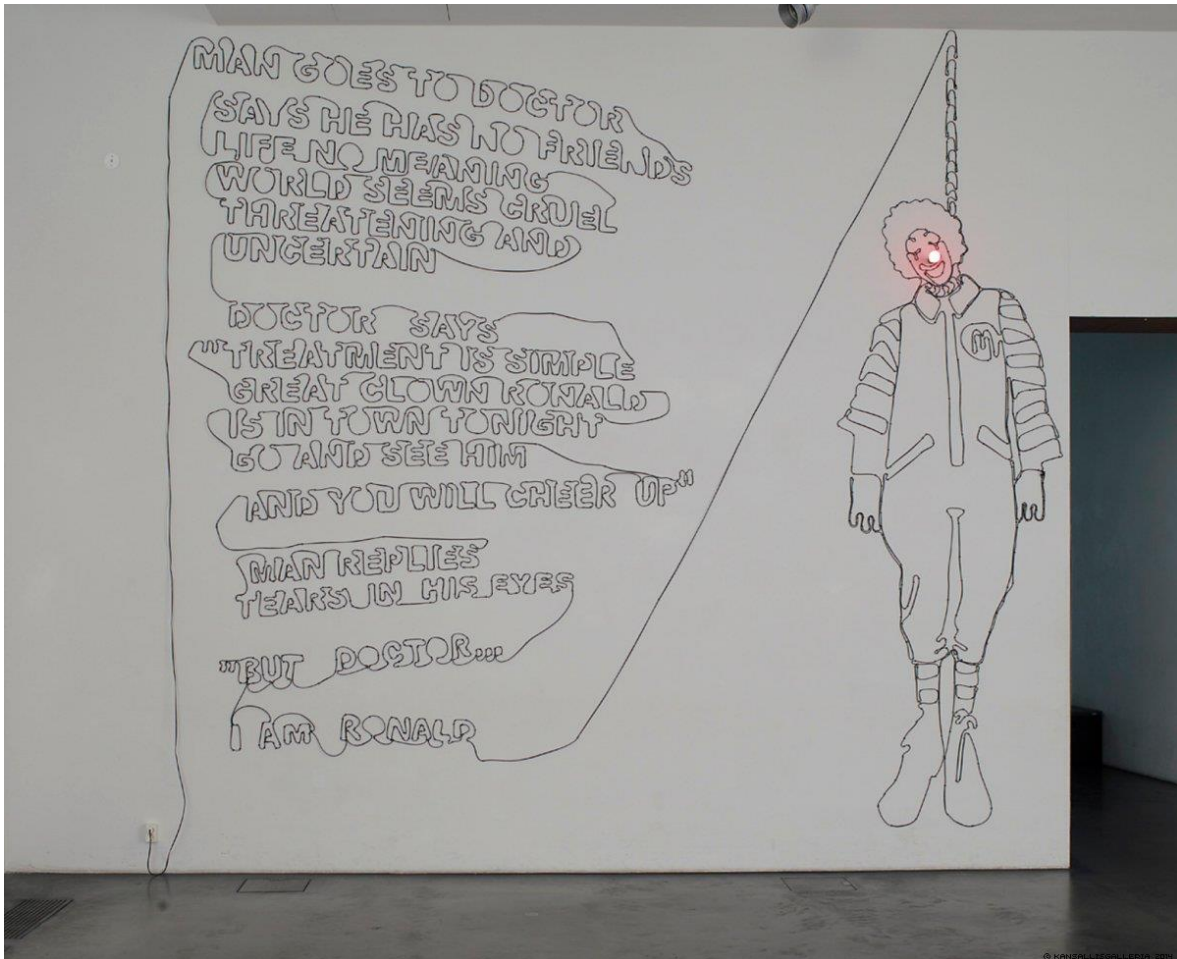 MAN GOES TO DOCTOR
SAYS HE HAS NO FRIENDS
LIFE NO MEANING
WORLD SEEMS CRUEL
THREATENING AND
UNCERTAIN
DOCTOR SAYS
"TREATMENT IS SIMPLE
GREAT CLOWN RONALD
IS IN TOWN TONIGHT
GO AND SEE HIM
AND YOU WILL CHEER UP"
MAN REPLIES
TEARS IN HIS EYES
"BUT DOCTOR...
I AM RONALD
M
© KANSALLISGALLERIA 2014